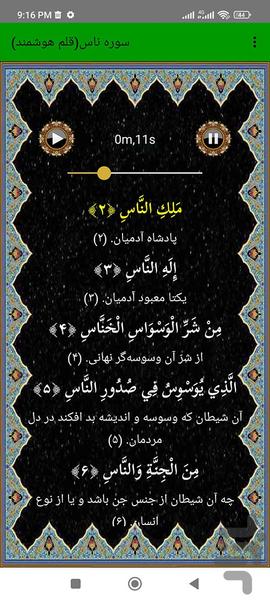 9:16 PM
44
سوره ناس(قلم هوشمند)
0m,11s
مَلِكِ النَّاسِ ﴿۲﴾
پادشاه آدمیان. (۲)
إِلَهِ النَّاسِ ﴿۳﴾
یکتا معبود آدمیان. (۳)
مِنْ شَرِّ الْوَسْوَاسِ الْخَنَّاسِ ﴿۴﴾
از شر آن وسوسه‌گر نهانی. (۴)
الَّذِي يُوَسْوِسُ فِي صُدُورِ النَّاسِ ﴿۵﴾
آن شیطان که وسوسه و اندیشه بد افکند در دل
مردمان. (۵)
مِنَ الْجِنَّةِ وَالنَّاسِ ﴿۶﴾
چه آن شیطان از جنس جن باشد و یا از نوع
انسان. (۶)